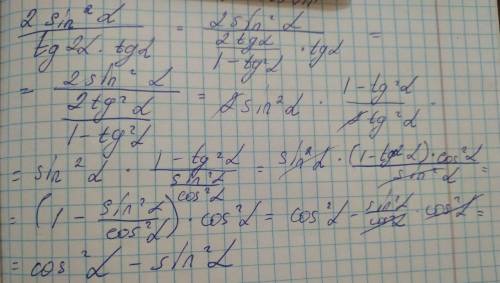 2 sin²α / (tg 2α · tgα) = 2 sin²α / ((2 tgα / (1 - tg²α)) · tgα) =
= 2 sin²α / (2 tg²α / (1 - tg²α)) = 2 sin²α · (1 - tg²α) / (2 tg²α)
= sin²α · (1 - tg²α) / (sin²α / cos²α) = sin²α · (1 - tg²α) · cos²α / sin²α =
= (1 - sin²α / cos²α) · cos²α = cos²α - sin²α / cos²α · cos²α =
= cos²α - sin²α